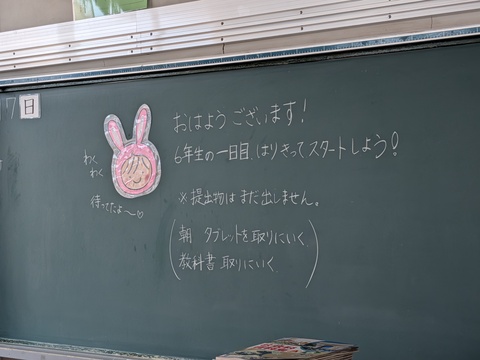 7 日
おはようございます!
6年生の一日目、はりきってスタートしよう!
わく
わく
待ってたよ〜♡
※提出物はまだ出しません。
(朝 タブレットを取りにいく
教科書取りにいく)